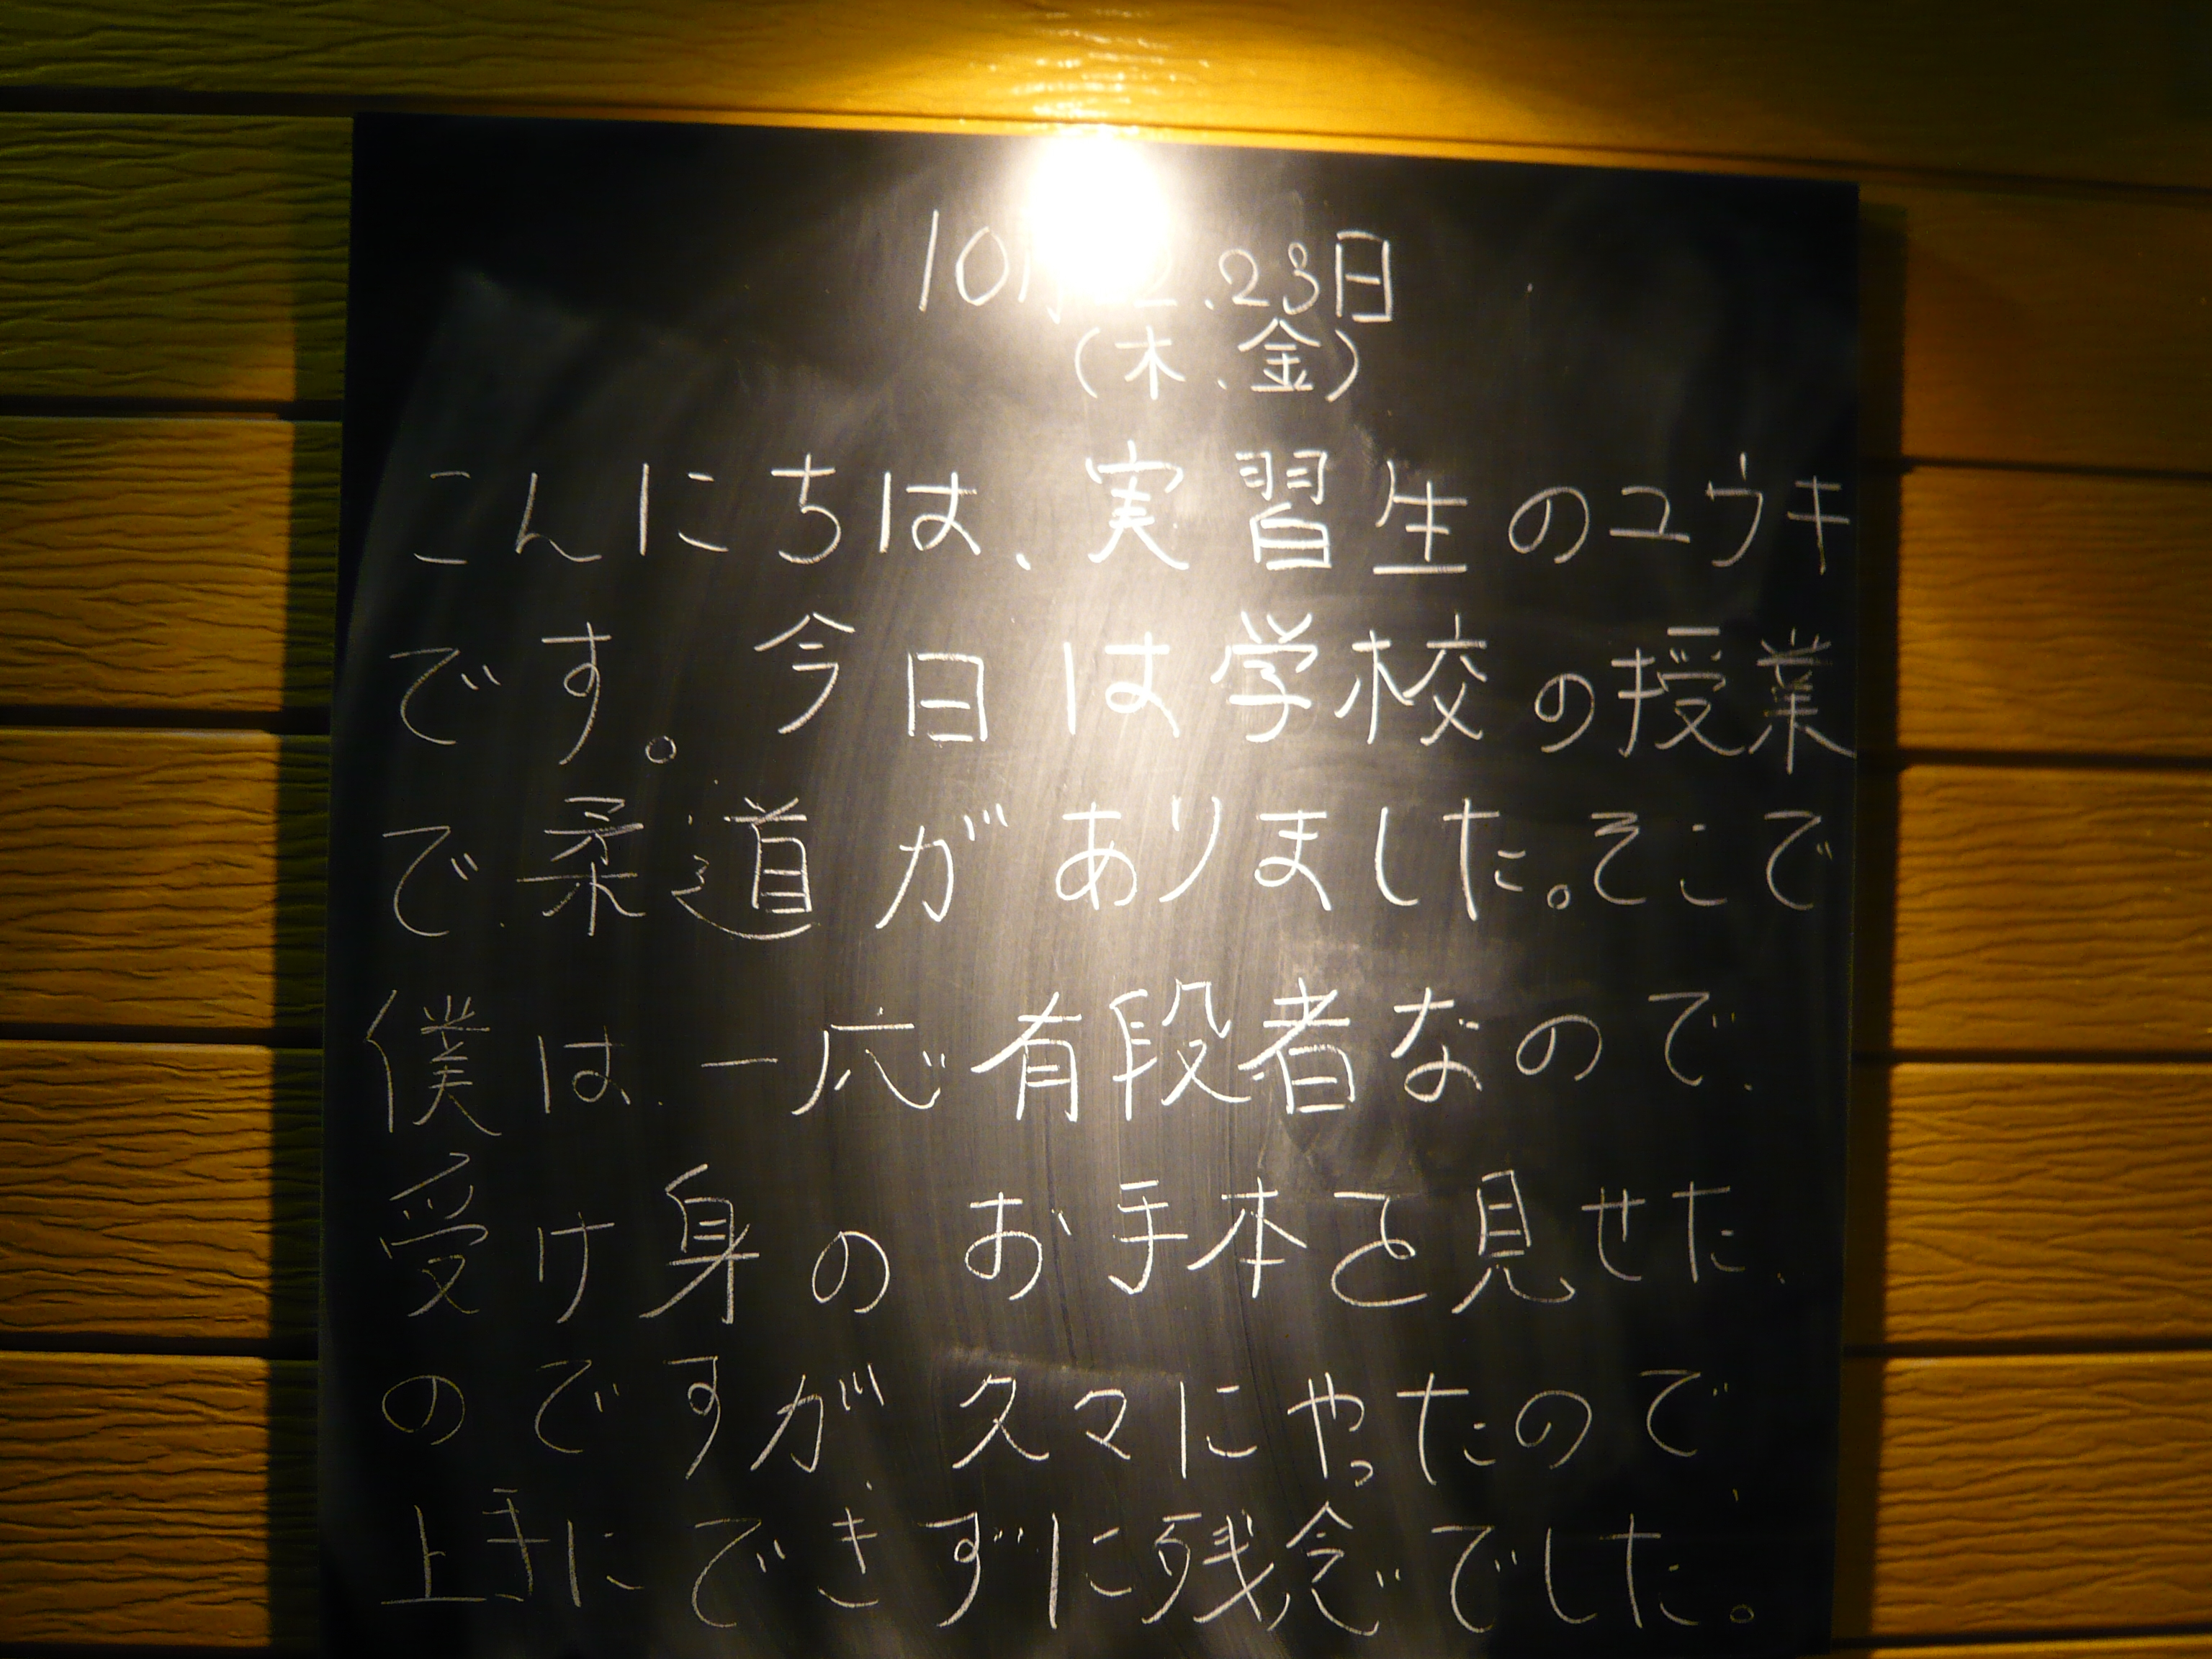 10月22、23日
(木、金)
こんにちは、実習生のユウキ
です。今日は学校の授業
で、柔道がありました。そこで
僕は、一応有段者なので、
受け身のお手本を見せた、
のですが、久々にやったので、
上手にできずに残念でした。